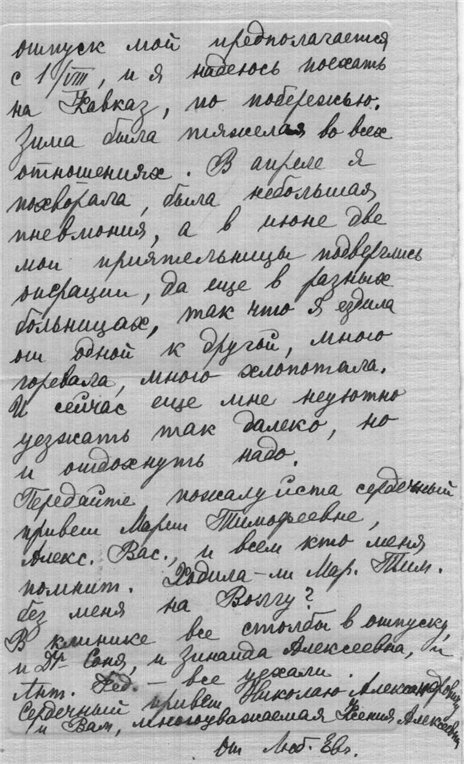 отпуск мой предполагается
с 1/VIII, и я надеюсь поехать
на Кавказ, по побережью.
Зима была тяжелая во всех
отношениях. В апреле я
похворала, была небольшая
пневмония, а в июне две
мои приятельницы подверглись
операции, да еще в разных
больницах, так что я ездила
от одной к другой, много
горевала, много хлопотала.
И сейчас еще мне неуютно
уезжать так далеко, но
и отдохнуть надо.
Передайте пожалуйста сердечный
привет Марии Тимофеевне,
Алекс. Вас., и всем кто меня
помнит. Ходила-ли Мар. Тим.
без меня на Волгу?
В клинике все столбы в отпуску,
и Др Соня, и Зинаида Алексеевна, и
Ант. Фед. – все уехали.
Сердечный привет Николаю Александровичу
и Вам, многоуважаемая Ксения Алексеевна
От Люб. Евг.